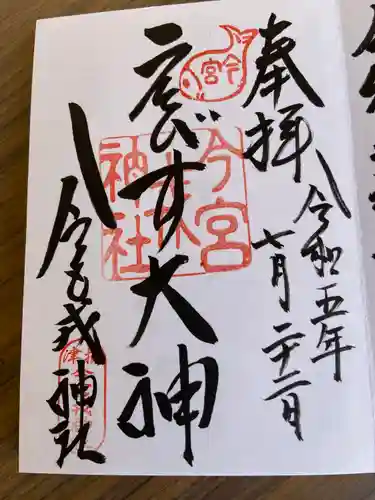 奉拝
令和五年
七月二十二日
今宮
ゑびす大神
今宮
戎
神社
今宮戎神社